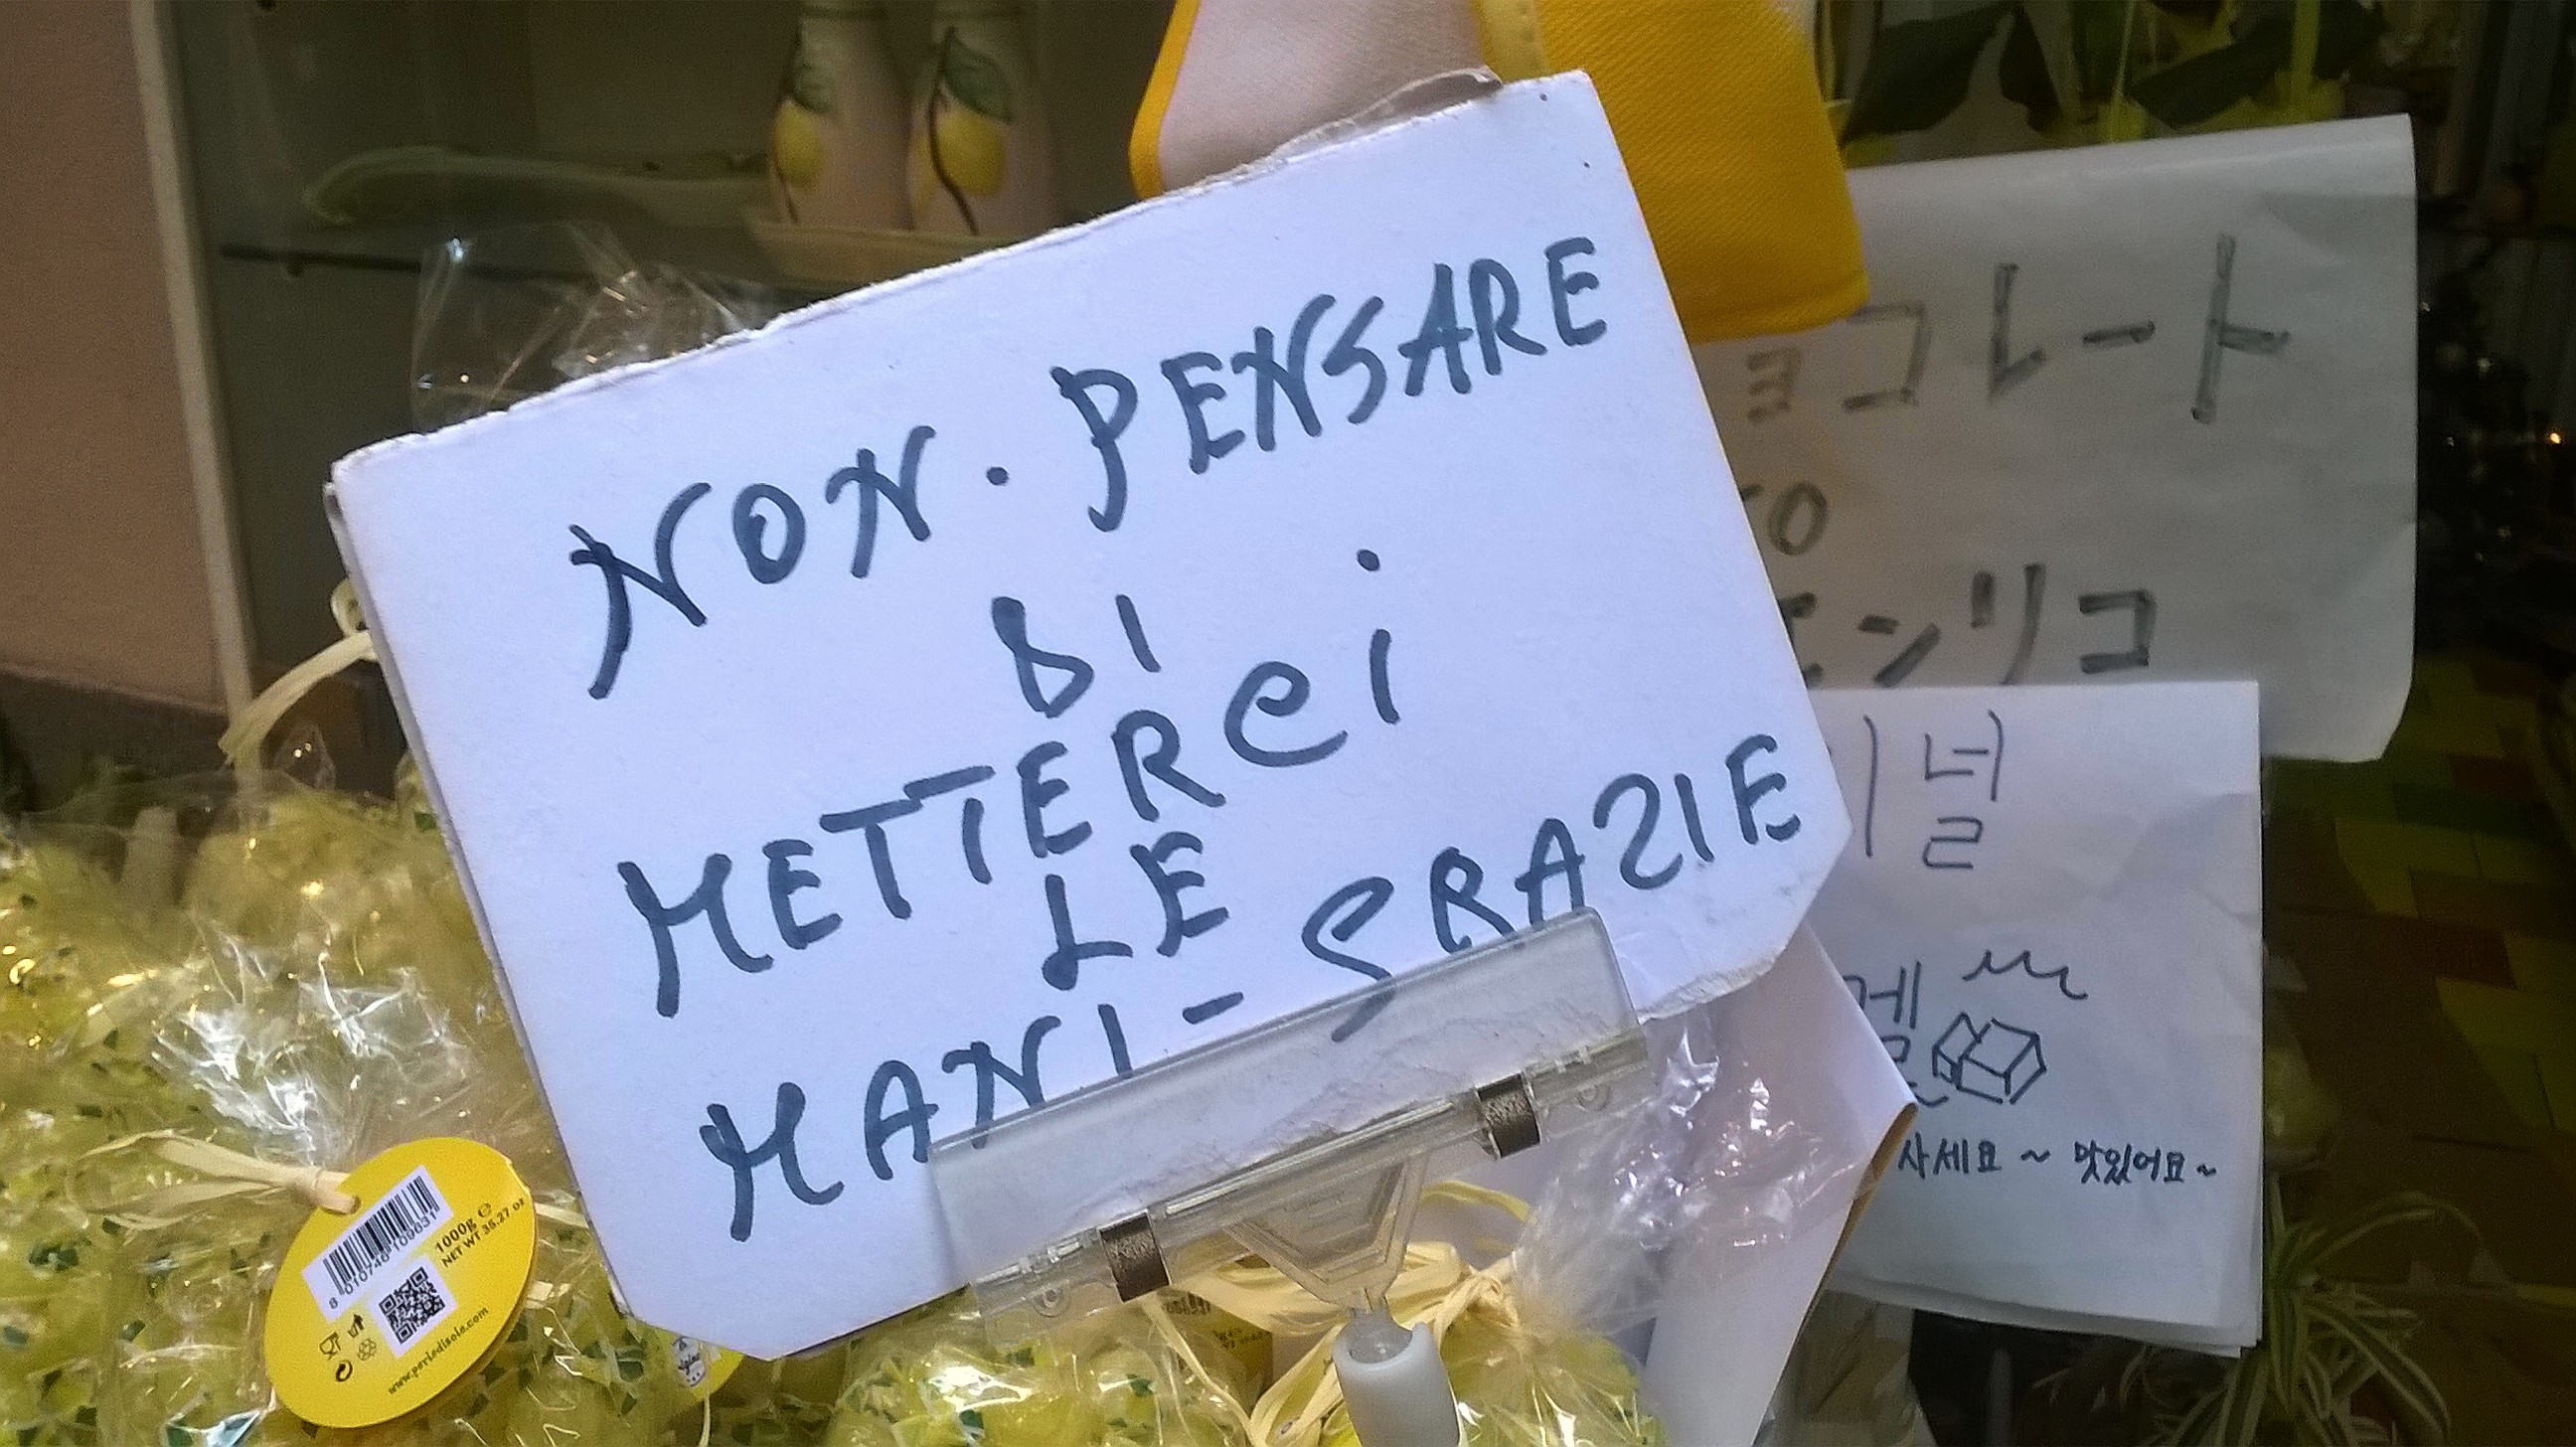 NON. PENSARE
DI
METTERCi
LE
MANI- GRAZIE
ョコレート
エンリコ
사세요 ~ 맛있어요~
1000g e
NET WT 35.27 oz
www.perledisole.com